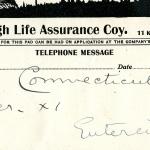 gh Life Assurance Coy. 11 K
FOR THIS PAD CAN BE HAD ON APPLICATION AT THE COMPANY'S
TELEPHONE MESSAGE
Date
Connecticut
er. x1